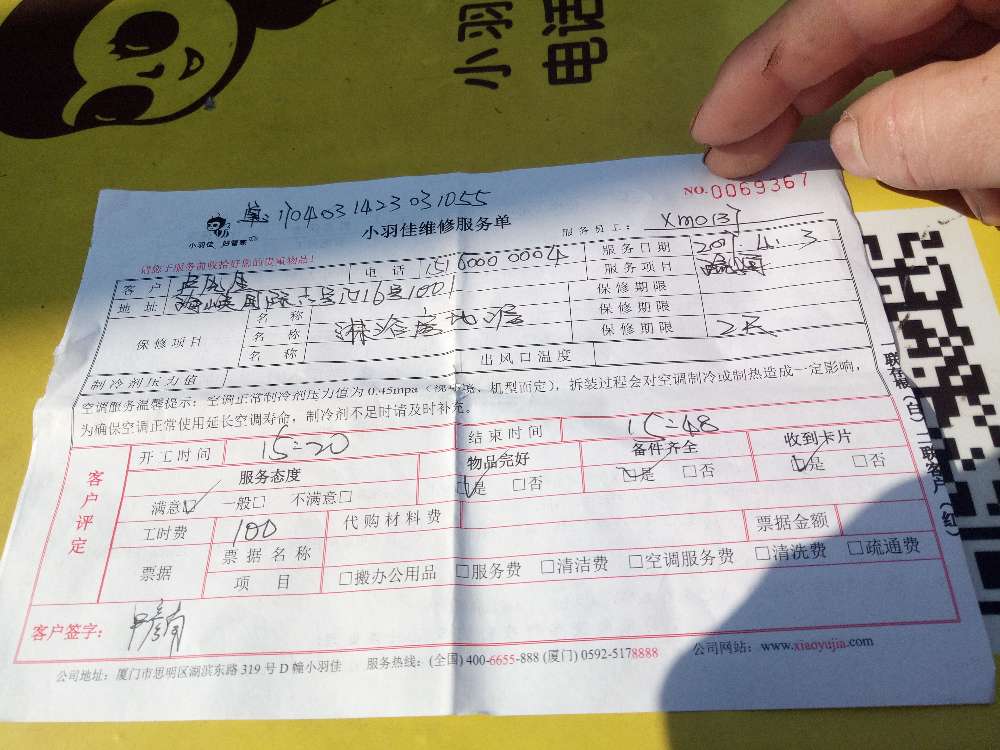 小羽
电话
NO.0069367
单:1704031423031055
小羽佳 好管家
小羽佳维修服务单
服务员工: XM013
请您于服务前收拾好您的贵重物品!
客户 电话 15160000004 服务日期 2017.4.3
地址 海峡国际六号门16号1001 服务项目 疏通
保修项目 名称 保修期限
名称 淋浴房地漏 保修期限
名称 保修期限 2天
制冷剂压力值 出风口温度
空调服务温馨提示:空调正常制冷剂压力值为0.45mpa(视环境、机型而定),拆装过程会对空调制冷或制热造成一定影响,
为确保空调正常使用延长空调寿命,制冷剂不足时请及时补充。
客户评定
开工时间 15:20 结束时间 15:48
服务态度 物品完好 备件齐全 收到卡片
满意☑ 一般□ 不满意□ ☑是 □否 ☑是 □否 ☑是 □否
工时费 100 代购材料费 票据金额
票据 票据名称
项目 □搬办公用品 □服务费 □清洁费 □空调服务费 □清洗费 □疏通费
客户签字:
公司地址:厦门市思明区湖滨东路319号D幢小羽佳 服务热线:(全国)400-6655-888(厦门)0592-5178888 公司网站:www.xiaoyujia.com
一联存根(白)二联客户(红)